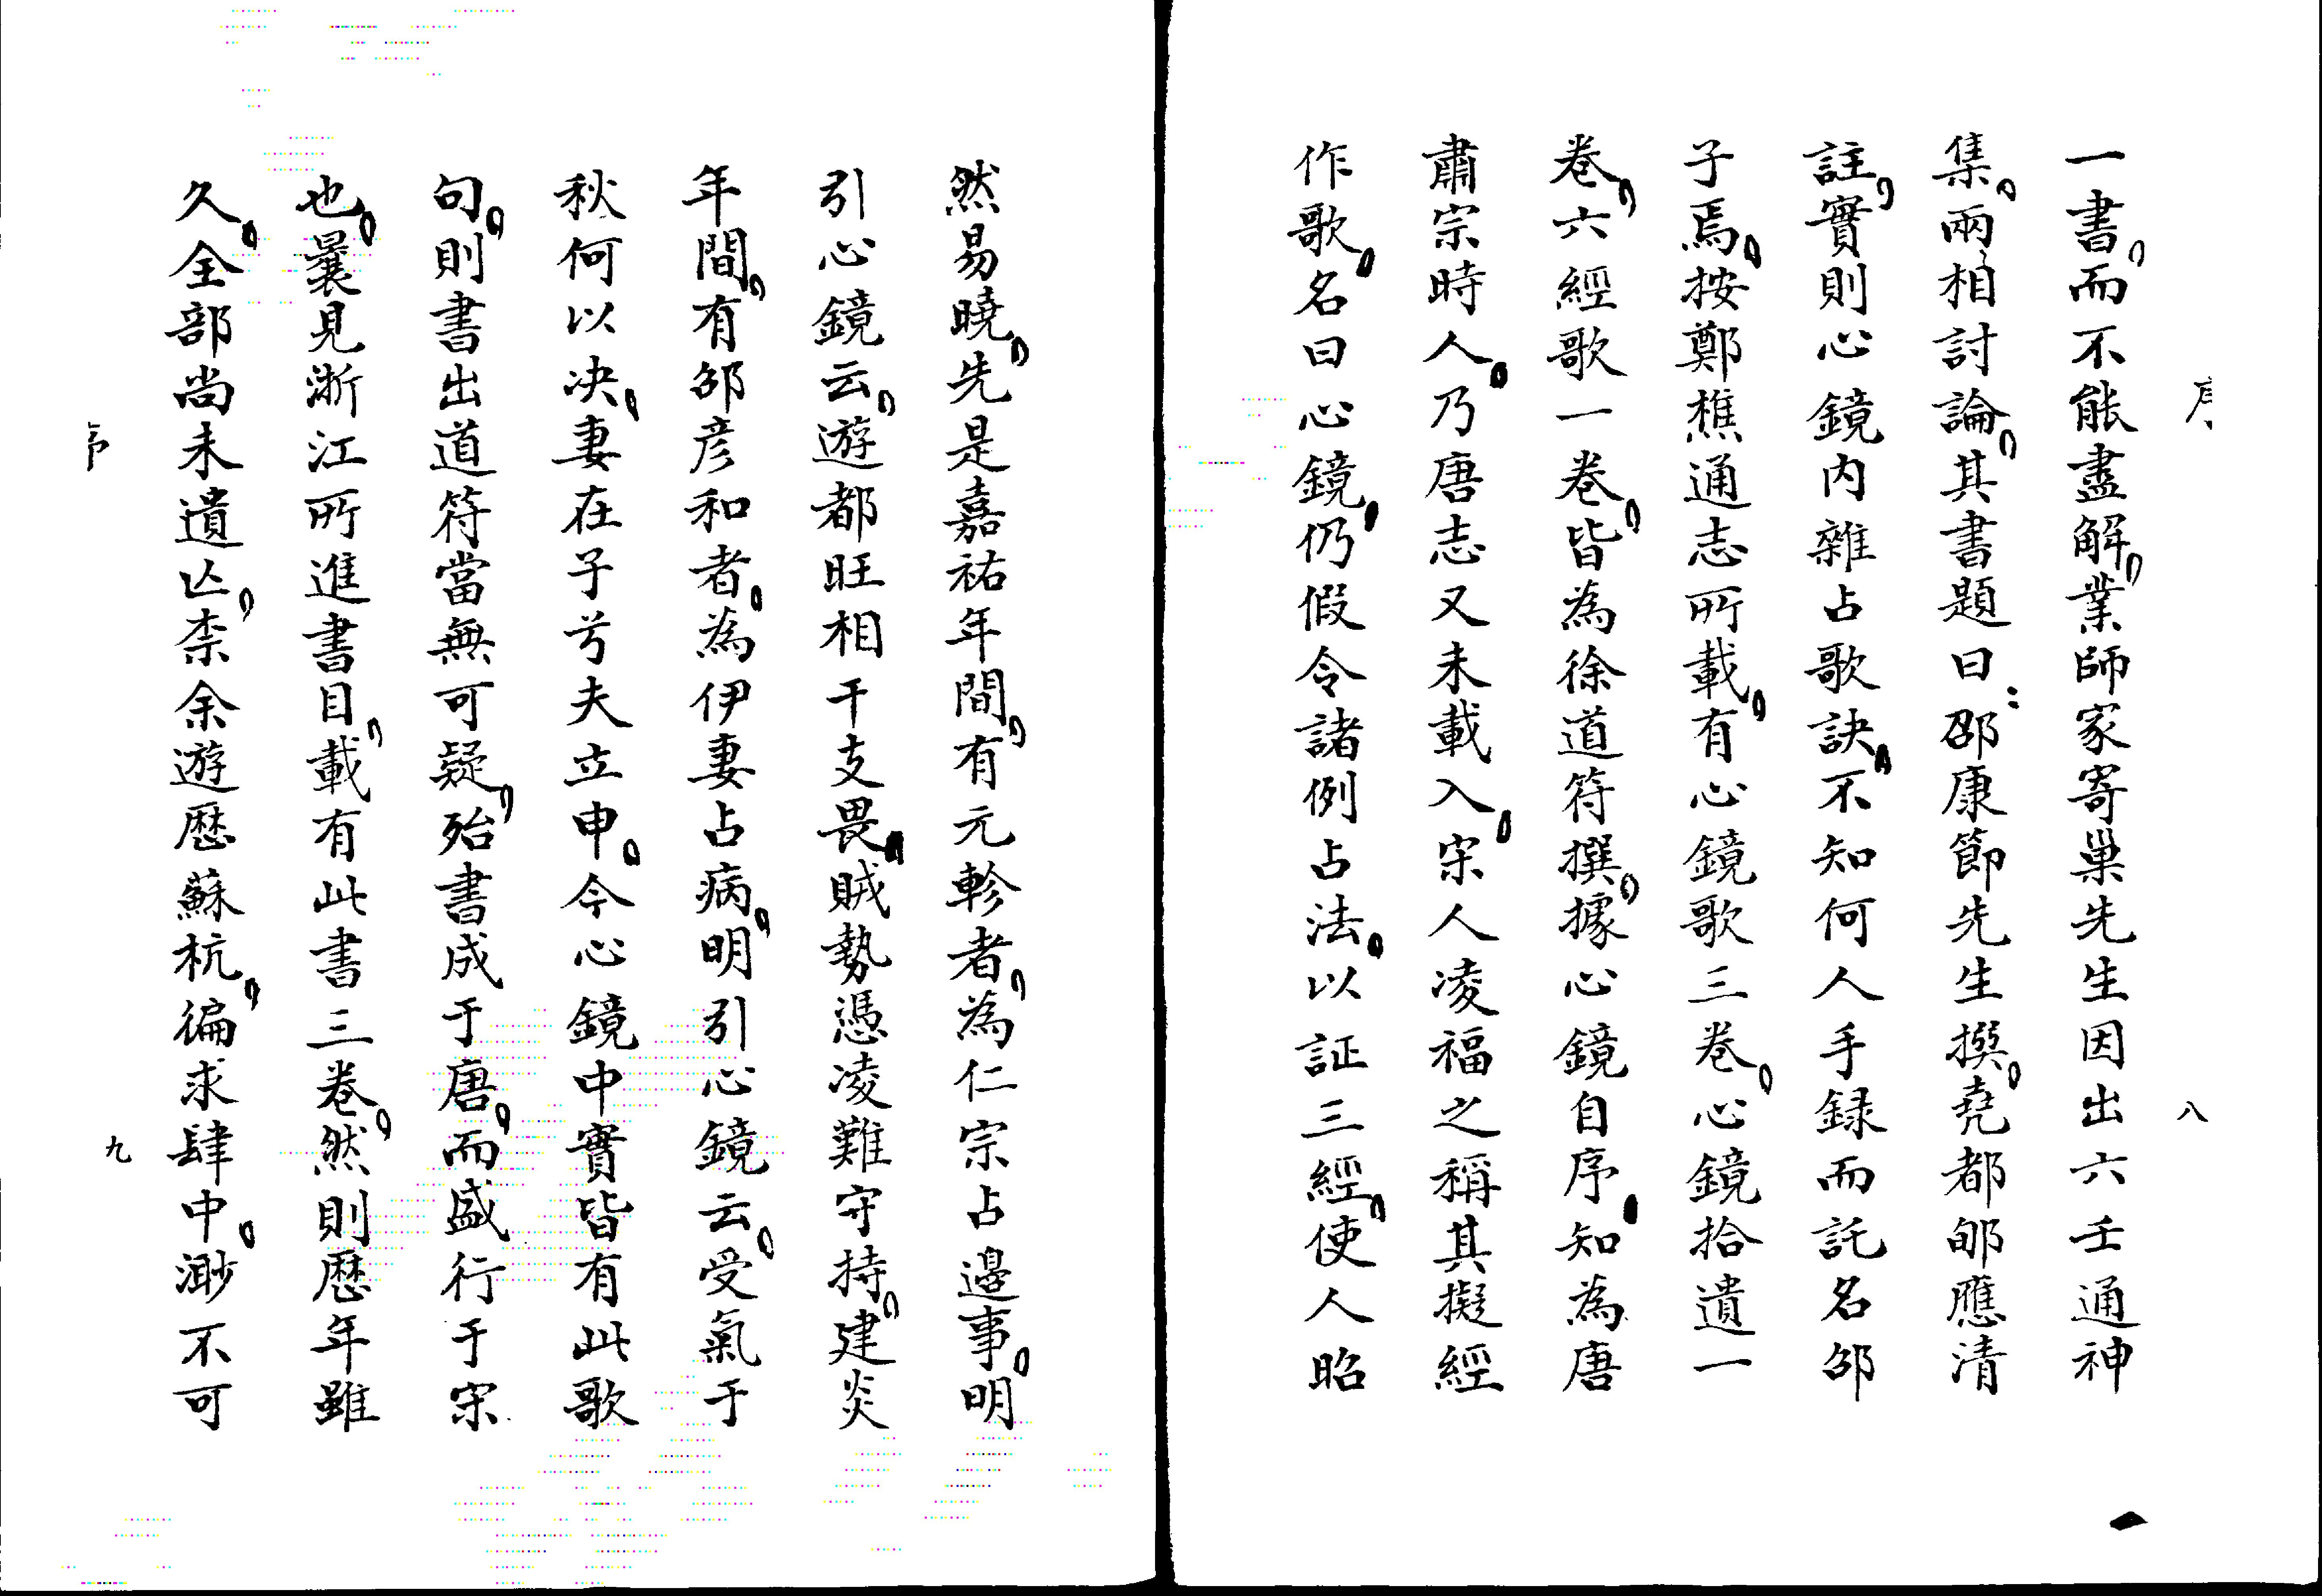 序
八
一書，而不能盡解，業師家寄巢先生因出六壬通神
集，兩相討論，其書題曰：邵康節先生撰，堯都郇應清
註，實則心鏡內雜占歌訣，不知何人手録而託名邵
子焉，按鄭樵通志所載，有心鏡歌三卷，心鏡拾遺一
卷，六經歌一卷，皆為徐道符撰，據心鏡自序，知為唐
肅宗時人，乃唐志又未載入，宋人凌福之稱其擬經
作歌，名曰心鏡，仍假令諸例占法，以証三經，使人昭
然易曉，先是嘉祐年間，有元軫者，為仁宗占邊事，明
引心鏡云，遊都旺相干支畏，賊勢憑凌難守持，建炎
年間，有邵彦和者，為伊妻占病，明引心鏡云，受氣于
秋何以决，妻在子兮夫立申，今心鏡中實皆有此歌
句，則書出道符當無可疑，殆書成于唐，而盛行于宋
也，曩見浙江所進書目，載有此書三卷，然則歷年雖
久，全部尚未遺亾，柰余遊歷蘇杭，徧求肆中，渺不可
序
九